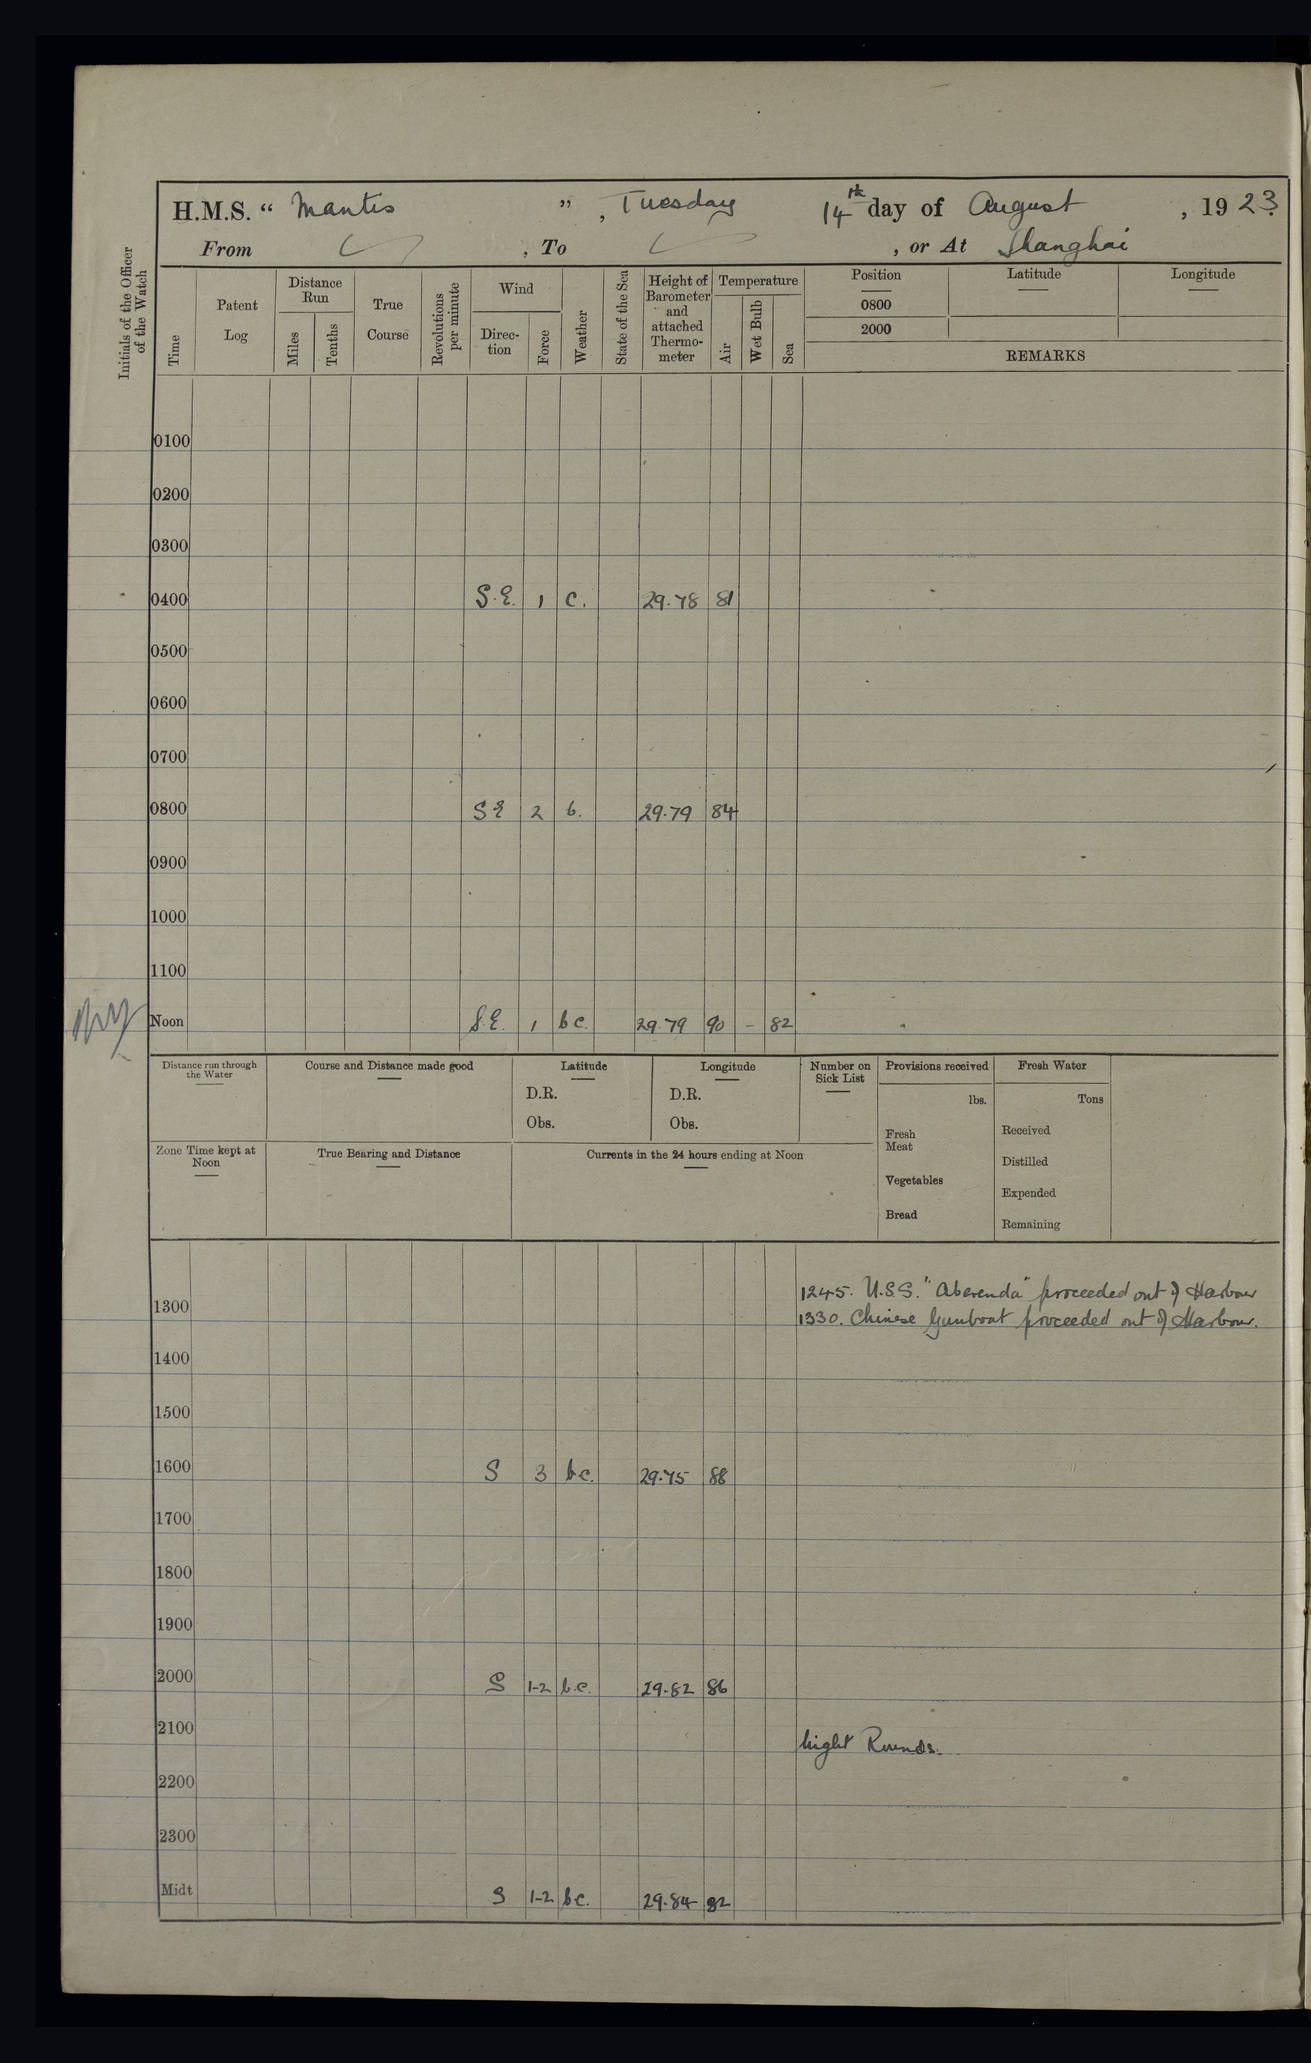 H.M.S. “ Mantis ” , Tuesday 14th day of August , 1923
From , To , or At Shanghai
Initials of the Officer of the Watch
Time
Patent Log
Distance Run
Miles
Tenths
True Course
Revolutions per minute
Wind
Direc-tion
Force
Weather
State of the Sea
Height of Barometer and attached Thermo-meter
Temperature
Air
Wet Bulb
Sea
Position Latitude Longitude
0800
2000
REMARKS
0100
0200
0300
0400 S.E. 1 c. 29.78 81
0500
0600
0700
0800 SE 2 b. 29.79 84
0900
1000
1100
Noon S.E. 1 bc. 29.79 90 - 82
Distance run through the Water
Course and Distance made good
Latitude
D.R.
Obs.
Longitude
D.R.
Obs.
Number on Sick List
Provisions received
lbs.
Fresh Meat
Vegetables
Bread
Fresh Water
Tons
Received
Distilled
Expended
Remaining
Zone Time kept at Noon
True Bearing and Distance
Currents in the 24 hours ending at Noon
1245. U.S.S. "Aberenda" proceeded out of Harbour
1300
1330. Chinese Gunboat proceeded out of Harbour.
1400
1500
1600 S 3 bc. 29.75 88
1700
1800
1900
2000 S 1-2 b.c. 29.82 86
2100 Night Rounds.
2200
2300
Midt S 1-2 bc. 29.84 82